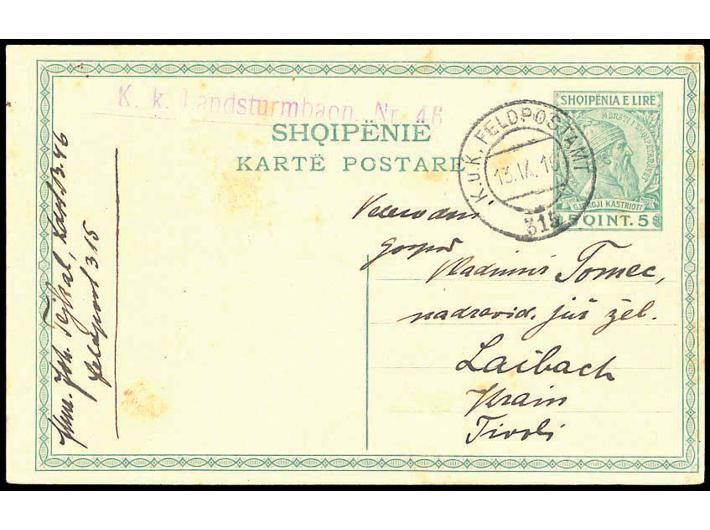 K. k. Landsturmbaon. Nr. 46
SHQIPËNIË
KARTË POSTARE
SHQIPËNIA E LIRE
GJERGJI KASTRIOTI
5 QINT. 5
K.u.K. FELDPOSTAMT
13.IX.16
315
Velevredni
Gospod
Vladimir Tomec,
nadzovid. juž. žel.
Laibach
Krain
Tivoli
Joh. Tejkal, Ldst B. 46
Feldpost 315